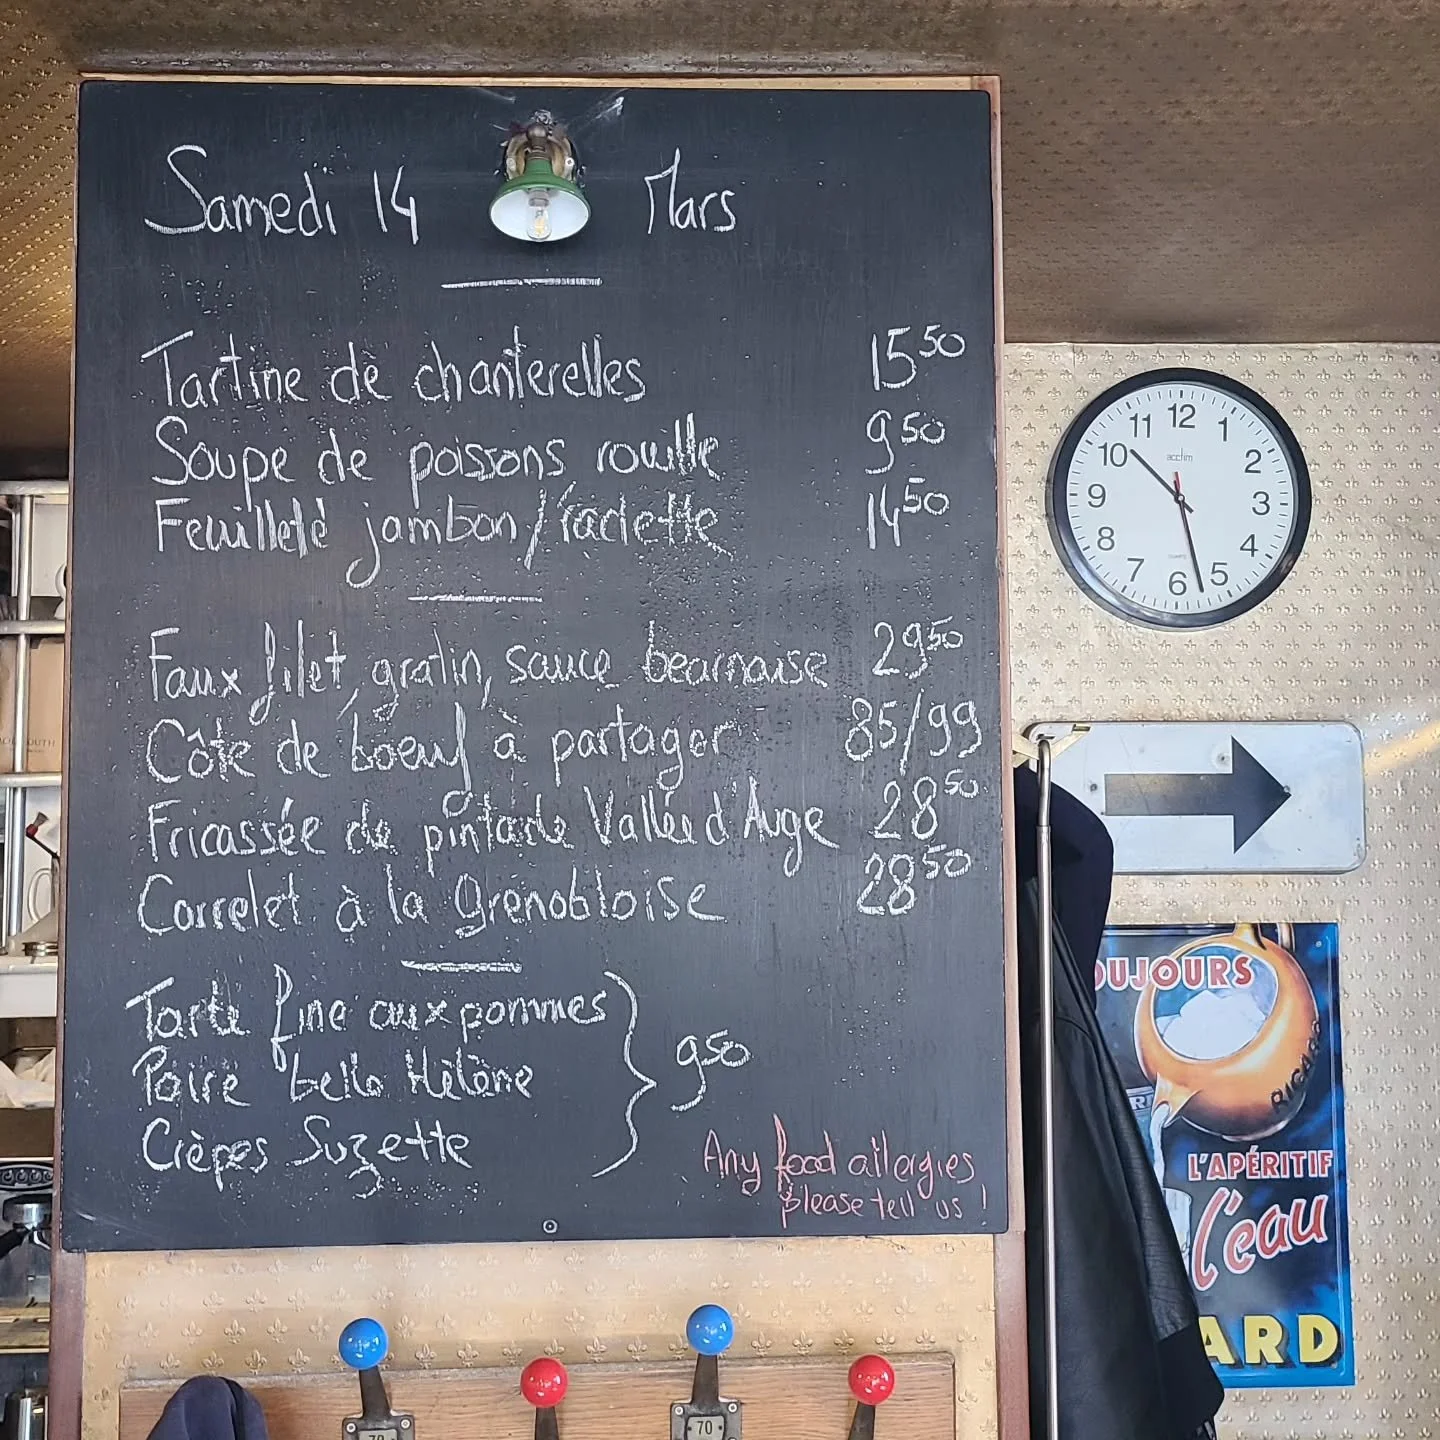 Samedi 14 Mars
Tartine de chanterelles 15.50
Soupe de poissons, rouille 9.50
Feuilleté jambon/raclette 14.50
Faux filet, gratin, sauce bearnaise 29.50
Côte de boeuf à partager 85/99
Fricassée de pintade Vallée d'Auge 28.50
Carrelet à la grenobloise 28.50
Tarte fine aux pommes
Poire belle Hélène 9.50
Crèpes Suzette
Any food allergies
please tell us !
11 12 1
10 2
9 3
8 4
7 6 5
acctim
OUJOURS
RICARD
L'APÉRITIF
l'eau
ARD
70
70